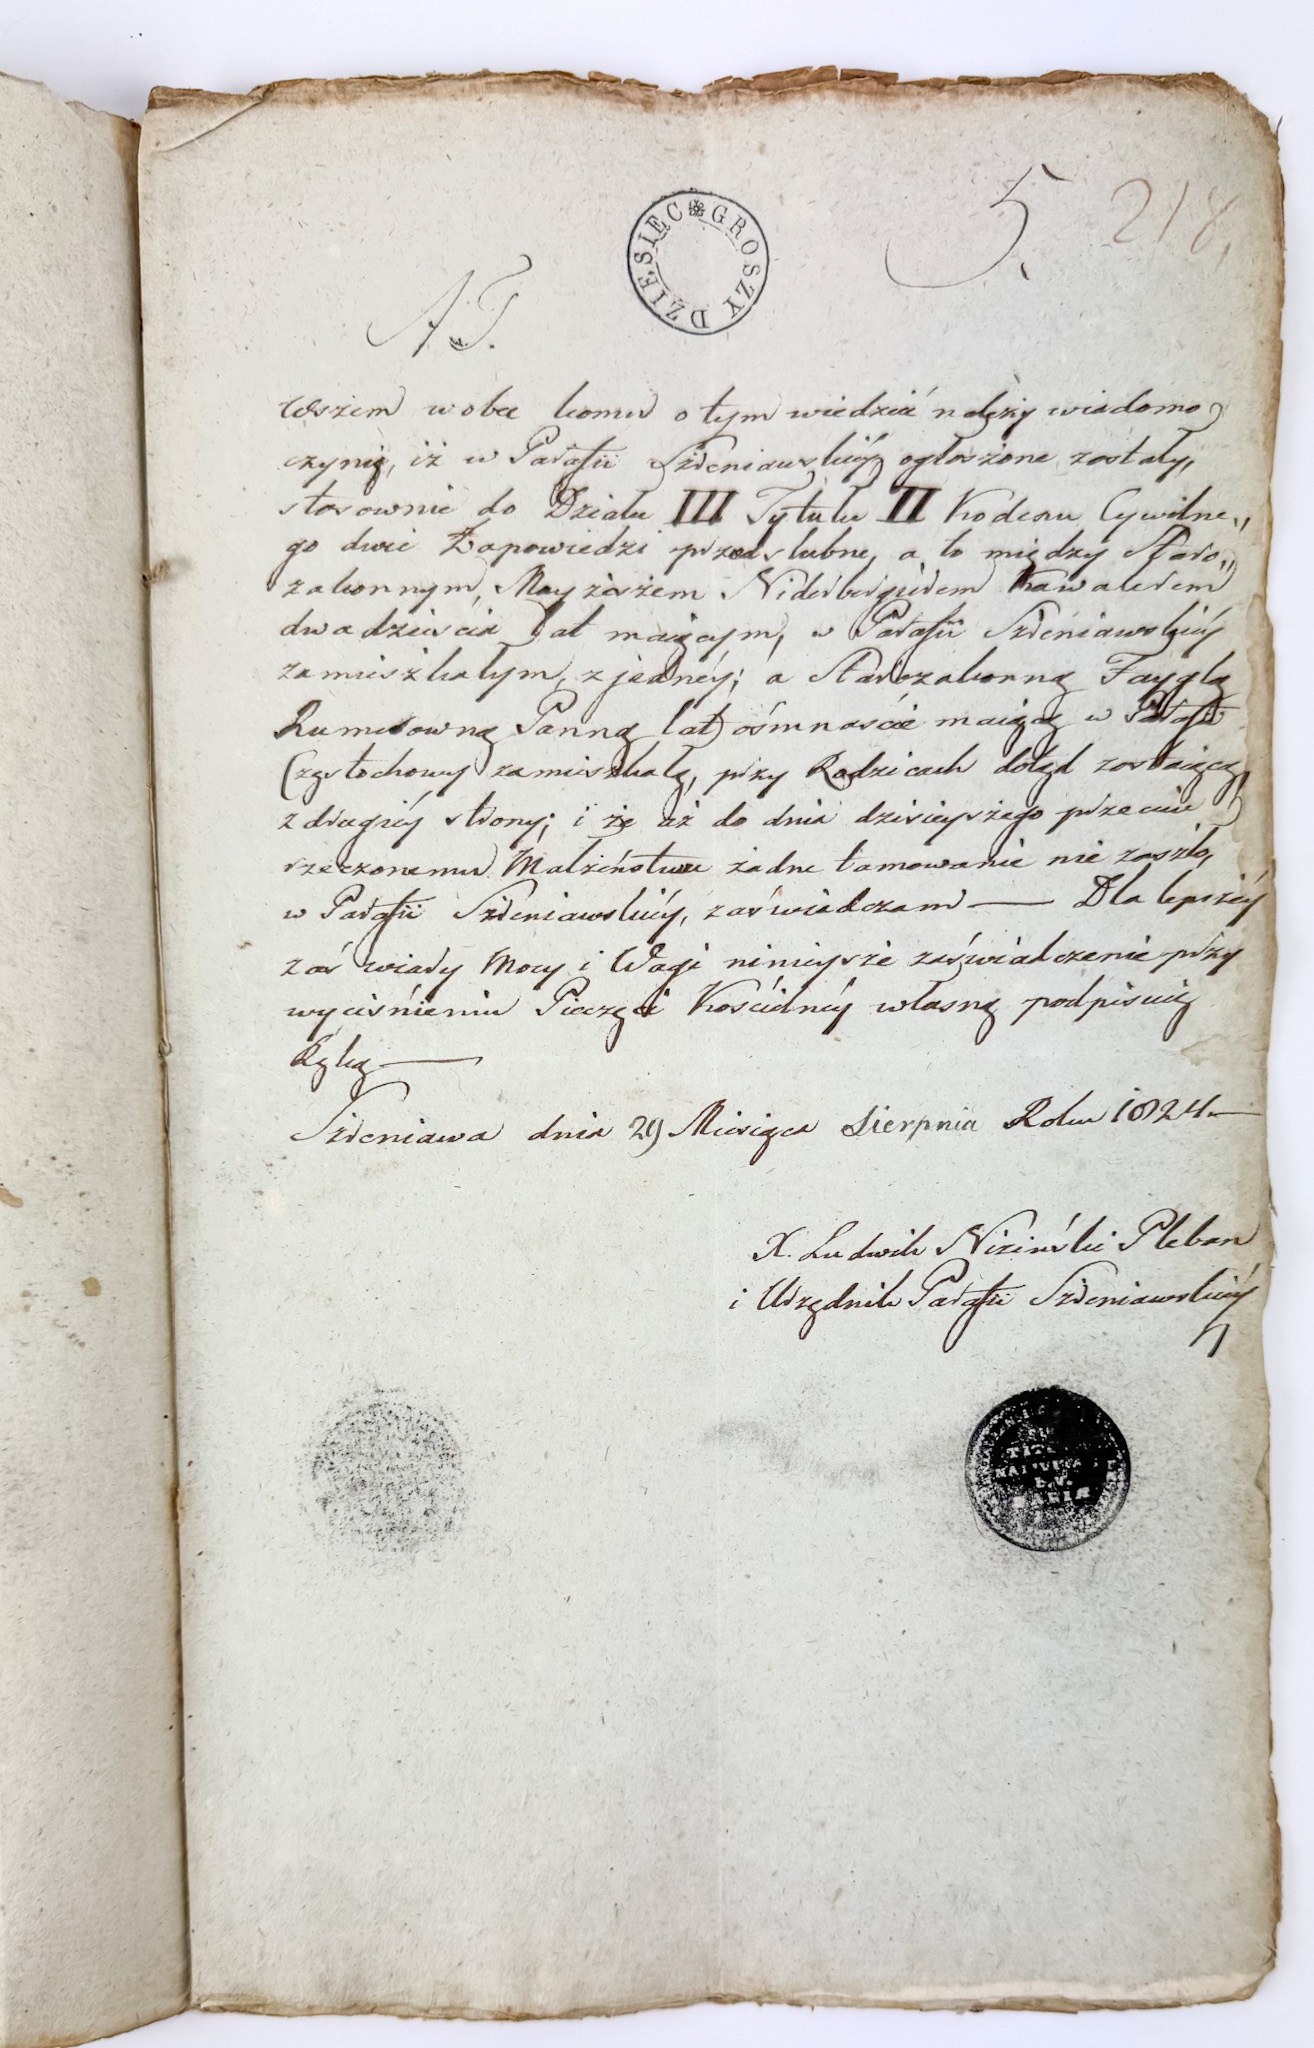 5. 218.
DZIESIĘC GROSZY
N. 5.
Wszem w obec komu o tym wiedzieć należy wiadomo
czynię, iż w Parafii Szreniawskiéy ogłoszone zostały,
stosownie do Działu III Tytułu II Kodexu Cywilne„
go dwie Zapowiedzi przedslubne, a to między Staro„
zakonnym, Moyżeszem Niderbergierem Kawalerem
dwadzieścia lat maiącym, w Parafii Szreniawskiéy
zamieszkałym, z jednéy; a Starozakonną Fayglą
Panną lat ośmnaście maiącą w Parafii
Częstochowy zamieszkałą, przy Rodzicach dotąd zostaiącą
z drugiéy strony; i że aż do dnia dzisieyszego przeciw
rzeczonemu Małżeństwu żadne tamowanie nie zaszło,
w Parafii Szreniawskiéy, zaświadczam — Dla lepszéy
zaś wiary Mocy i Wagi nінieysze zaświadczenie przy
wyciśnieniu Pieczęci Kościelnéy własną podpisuię
Ręką —
Szreniawa dnia 29 Miesiąca Sierpnia Roku 1824 —
X. Ludwik Niziński Pleban
i Urzędnik Parafii Szreniawskiéy